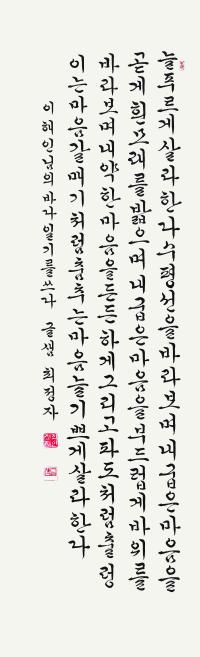 늘푸르게살라한다수평선을바라보며내굽은마음을
곧게흰모래를밟으며내굳은마음을부드럽게바위를
바라보며내약한마음을든든하게그리고파도처럼출렁
이는마음갈매기처럼춤추는마음늘기쁘게살라한다
이해인님의바다일기를쓰다 글샘 최정자